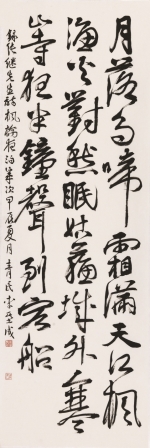 月落烏啼霜滿天江楓
漁火對愁眠姑蘇城外寒
山寺夜半鐘聲到客船
張繼先生詩楓橋夜泊甲辰夏月